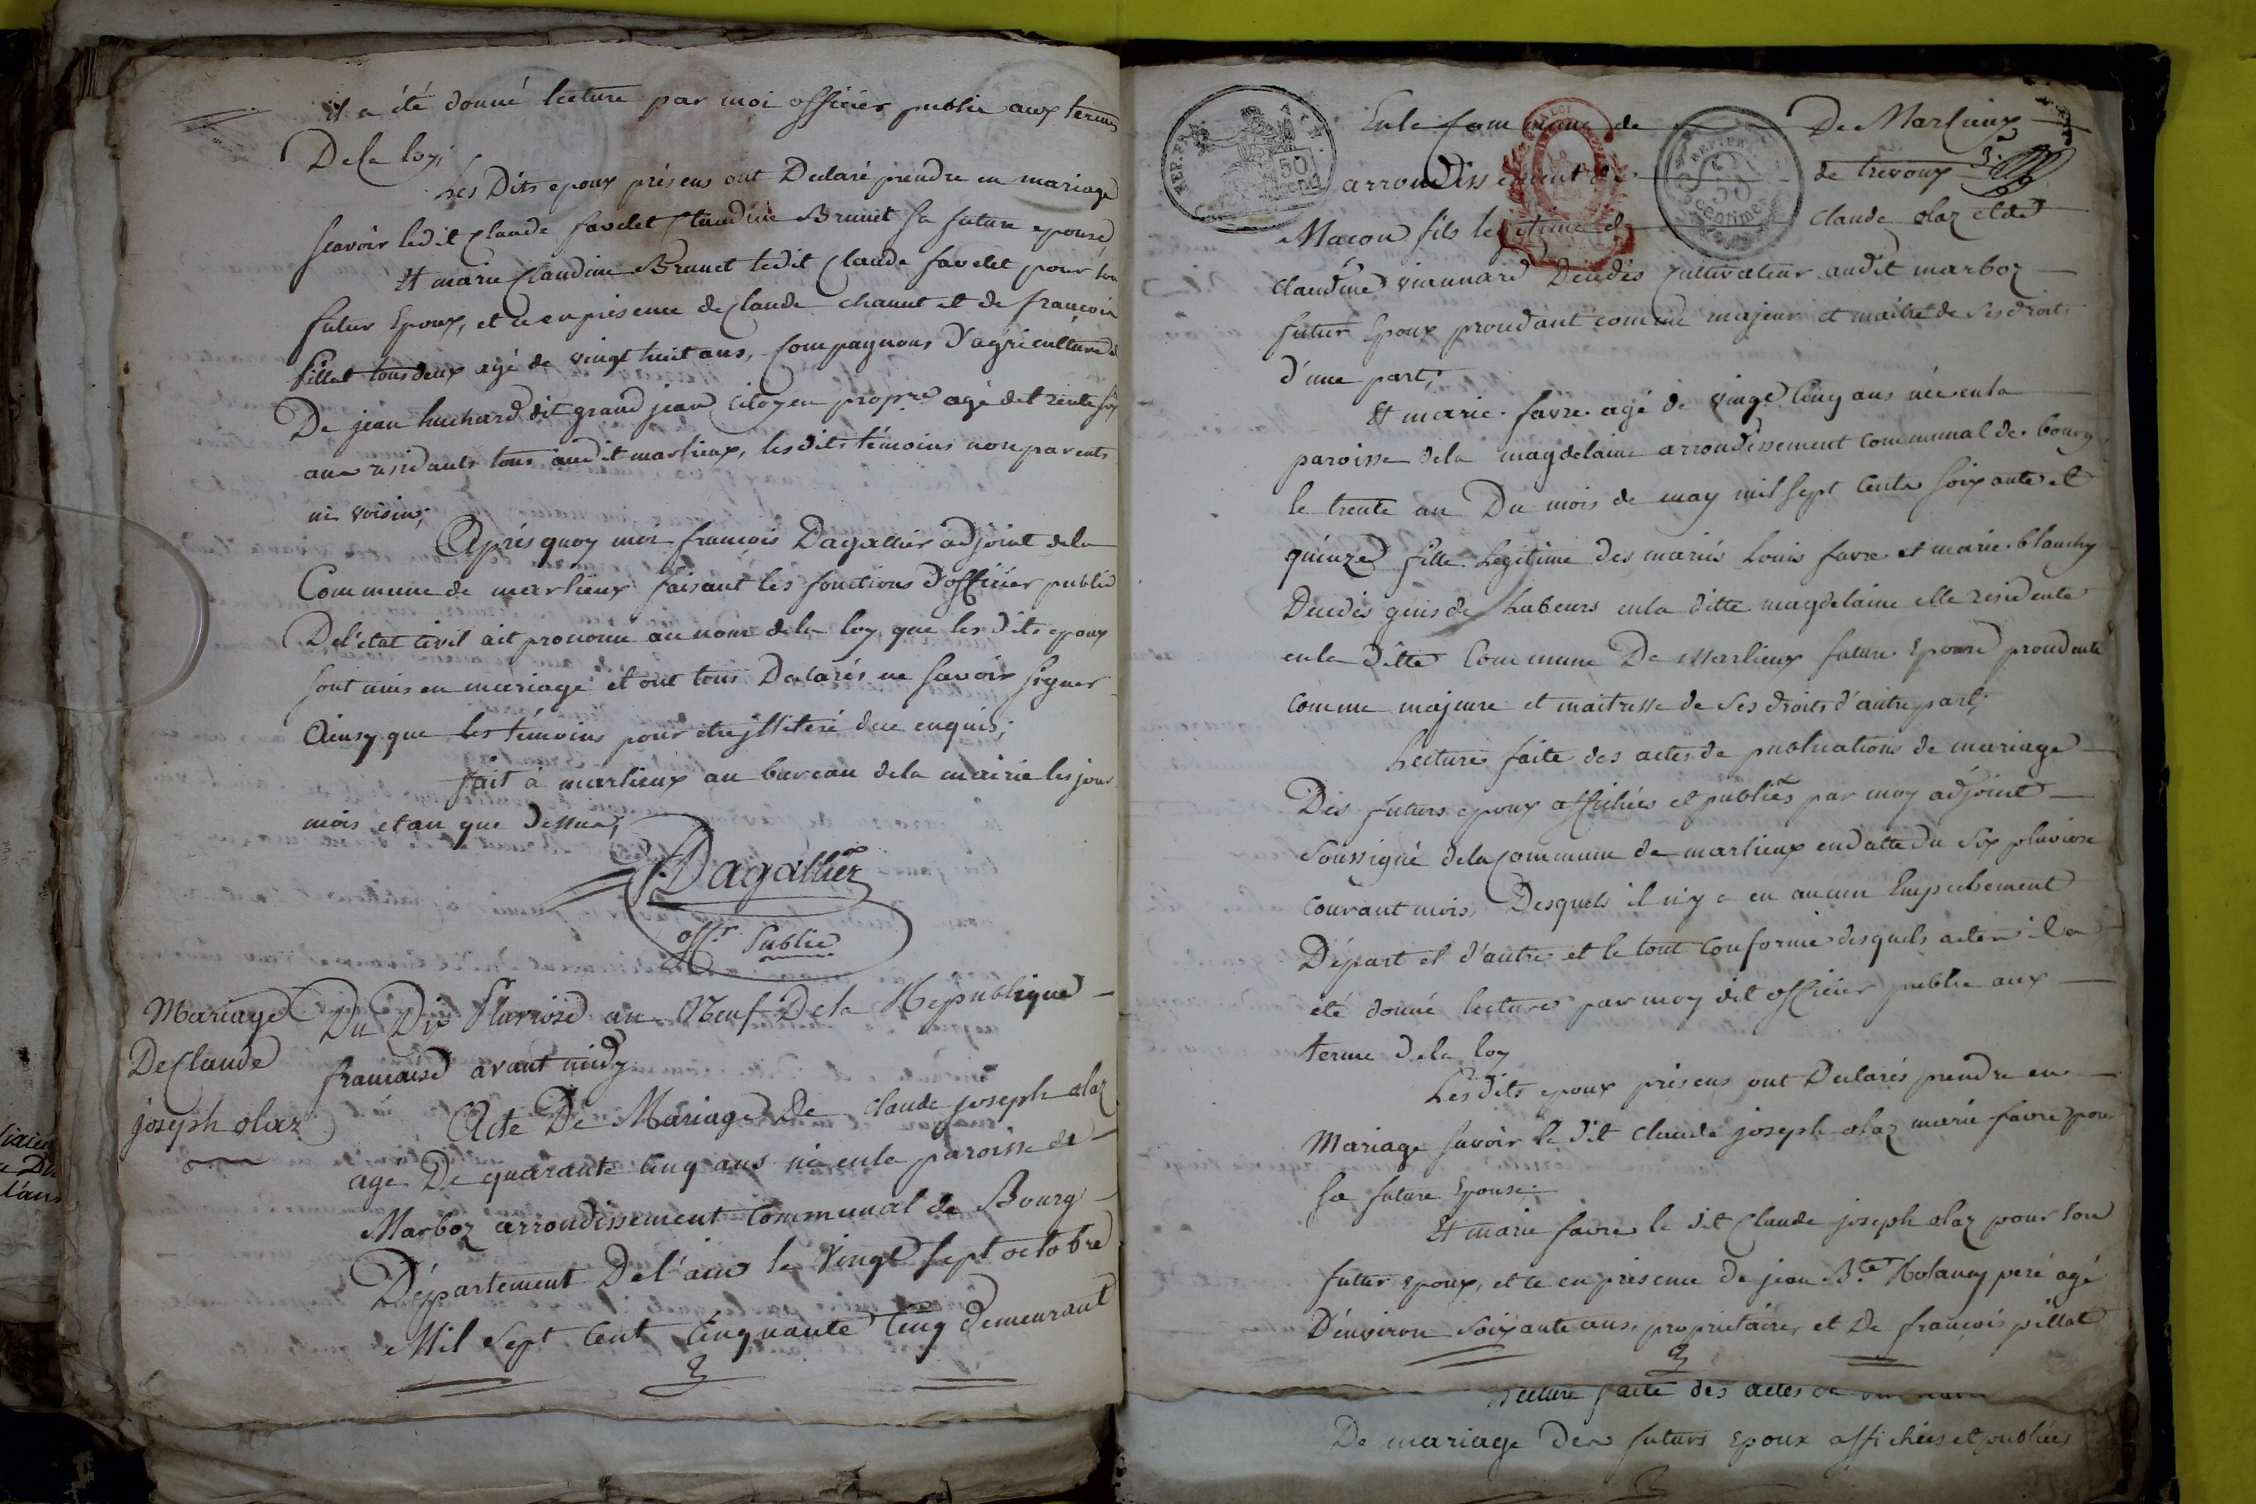 il a été donné lecture par moi officier public aux termes
De la loy;
Les Dits epoux présens ont Declaré prendre en mariage
scavoir ledit Claude favelet Claudine Brunet sa future epouse,
Et marie Claudine Brunet ledit Claude favelet pour son
futur Epoux, et ce en présence de Claude chanut et de francois
Pillat tous deux agé de vingt huit ans, Compagnons D'agriculture &
De jean huchard dit grand jean citoyen propre. agé de trente six
ans residants tous audit marlieux, les dits témoins non parents
ni voisins;
Après quoy moi francois Dagallier adjoint de la
Commune de marlieux faisant les fonctions d'officier public
De l'état civil ait prononcé au nom de la loy que les dits epoux
sont unis en mariage et ont tous Declarés ne savoir signer
Ainsy que les témoins pour etre illiteré de ce enquis;
fait à marlieux au bureau de la mairie les jour
mois et an que Dessus;
Dagallier
offr. Public
Mariage
De Claude
joseph olaz
Du Dix Pluviose an Neuf De la Republique
francaise avant midy
Acte De Mariage De Claude joseph olaz
age De quarante cinq ans né en la paroisse de
Marboz arrondissement Communal de Bourg
Département De l'ain le vingt sept octobre
Mil Sept Cent Cinquante Cinq demeurant
REP. FRA.
50
cent
En la Commune de De Marlieux
arrondissement de de trevoux
REP. FRA.
50
centimes
Macon fils legitime de Claude olaz et de
Claudine viannard Decedés cultivateur audit marboz
futur Epoux procédant comme majeur et maitre de ses droits
d'une part;
Et marie favre agé de vingt cinq ans née en la
paroisse de la magdelaine arrondissement communal de bourg
le trente un Du mois de may mil sept cents soixante et
quinze fille Legitime des mariés Louis favre et marie blanchy
Decedés gens de Labeurs en la ditte magdelaine elle residente
en la ditte Commune De Marlieux future Epouse procedente
comme majeure et maitresse de ses droits d'autre part;
Lecture faite des actes de publications de mariage
Des futurs epoux affichées et publiés par moy adjoint
soussigné de la Commune de marlieux en datte du six pluviose
courant mois, Desquels il n'y a eu aucun Empechement
Départ et d'autre et le tout conforme desquels actes il a
été donné lecture par moy dit officier public aux
terme de la loy
Les dits epoux présens ont Declarés prendre en
Mariage savoir le dit Claude joseph olaz marie favre pour
sa future Epouse
Et marie favre le dit Claude joseph olaz pour son
futur epoux, et ce en présence de jean Bte. Rolamy peré agé
D'environ soixante ans, proprietaire, et De francois pillat
Lecture faite des actes de
De mariage Des futurs Epoux affichées et publiées